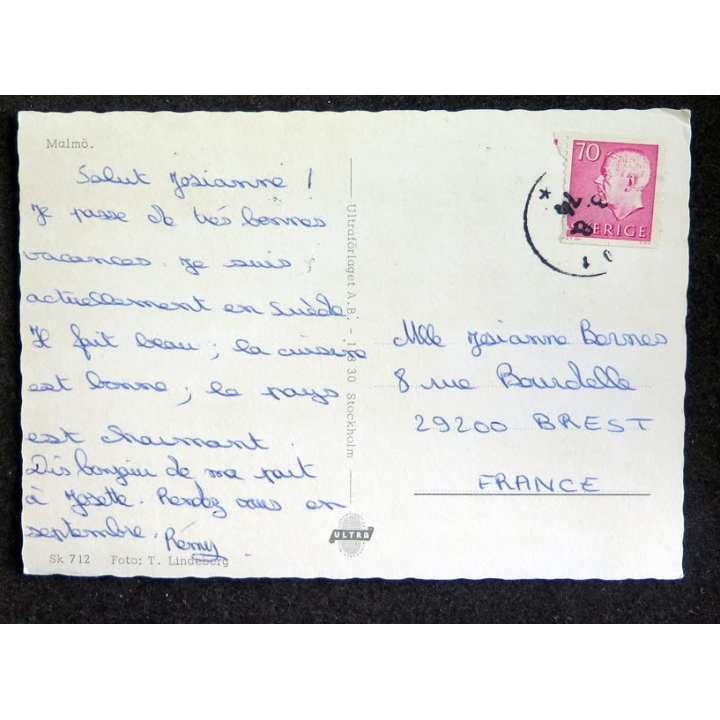 Malmö.
Salut Josianne !
Je passe de très bonnes
vacances. Je suis
actuellement en Suède
Il fait beau ; la cuisine
est bonne ; le pays
est charmant.
Dis bonjour de ma part
à Josette. Rendez vous en
septembre. Rémy
Sk 712 Foto: T. Lindeberg
Ultraförlaget A.B. - 118 30 Stockholm
ULTRA
70
SVERIGE
Mlle Josianne Bornes
8 rue Bourdelle
29200 BREST
FRANCE